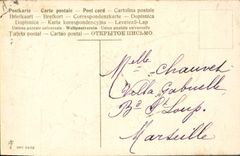 Postkarte Carte postale Post card Cartolina postale
Briefkaart Brefkort Correspondenzkarte Dopisnica
Dopisnice Karta korespondencyjna Levelező-Lap
Unione postale universale Weltpostverein Union postale universelle
Tarjeta postal Cartão postal ОТКРЫТОЕ ПИСЬМО
Melle Chauvet
Villa Gabrielle
Bd St Loup.
Marseille